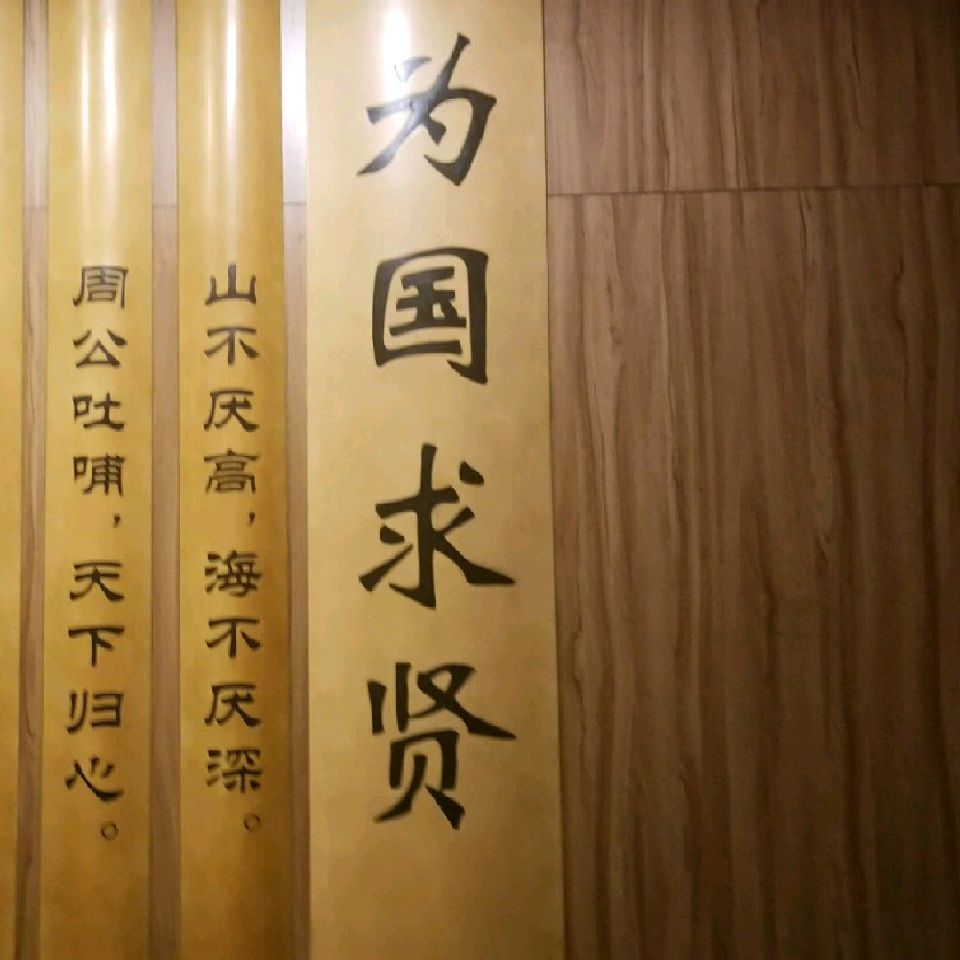 为国求贤
山不厌高，海不厌深。
周公吐哺，天下归心。